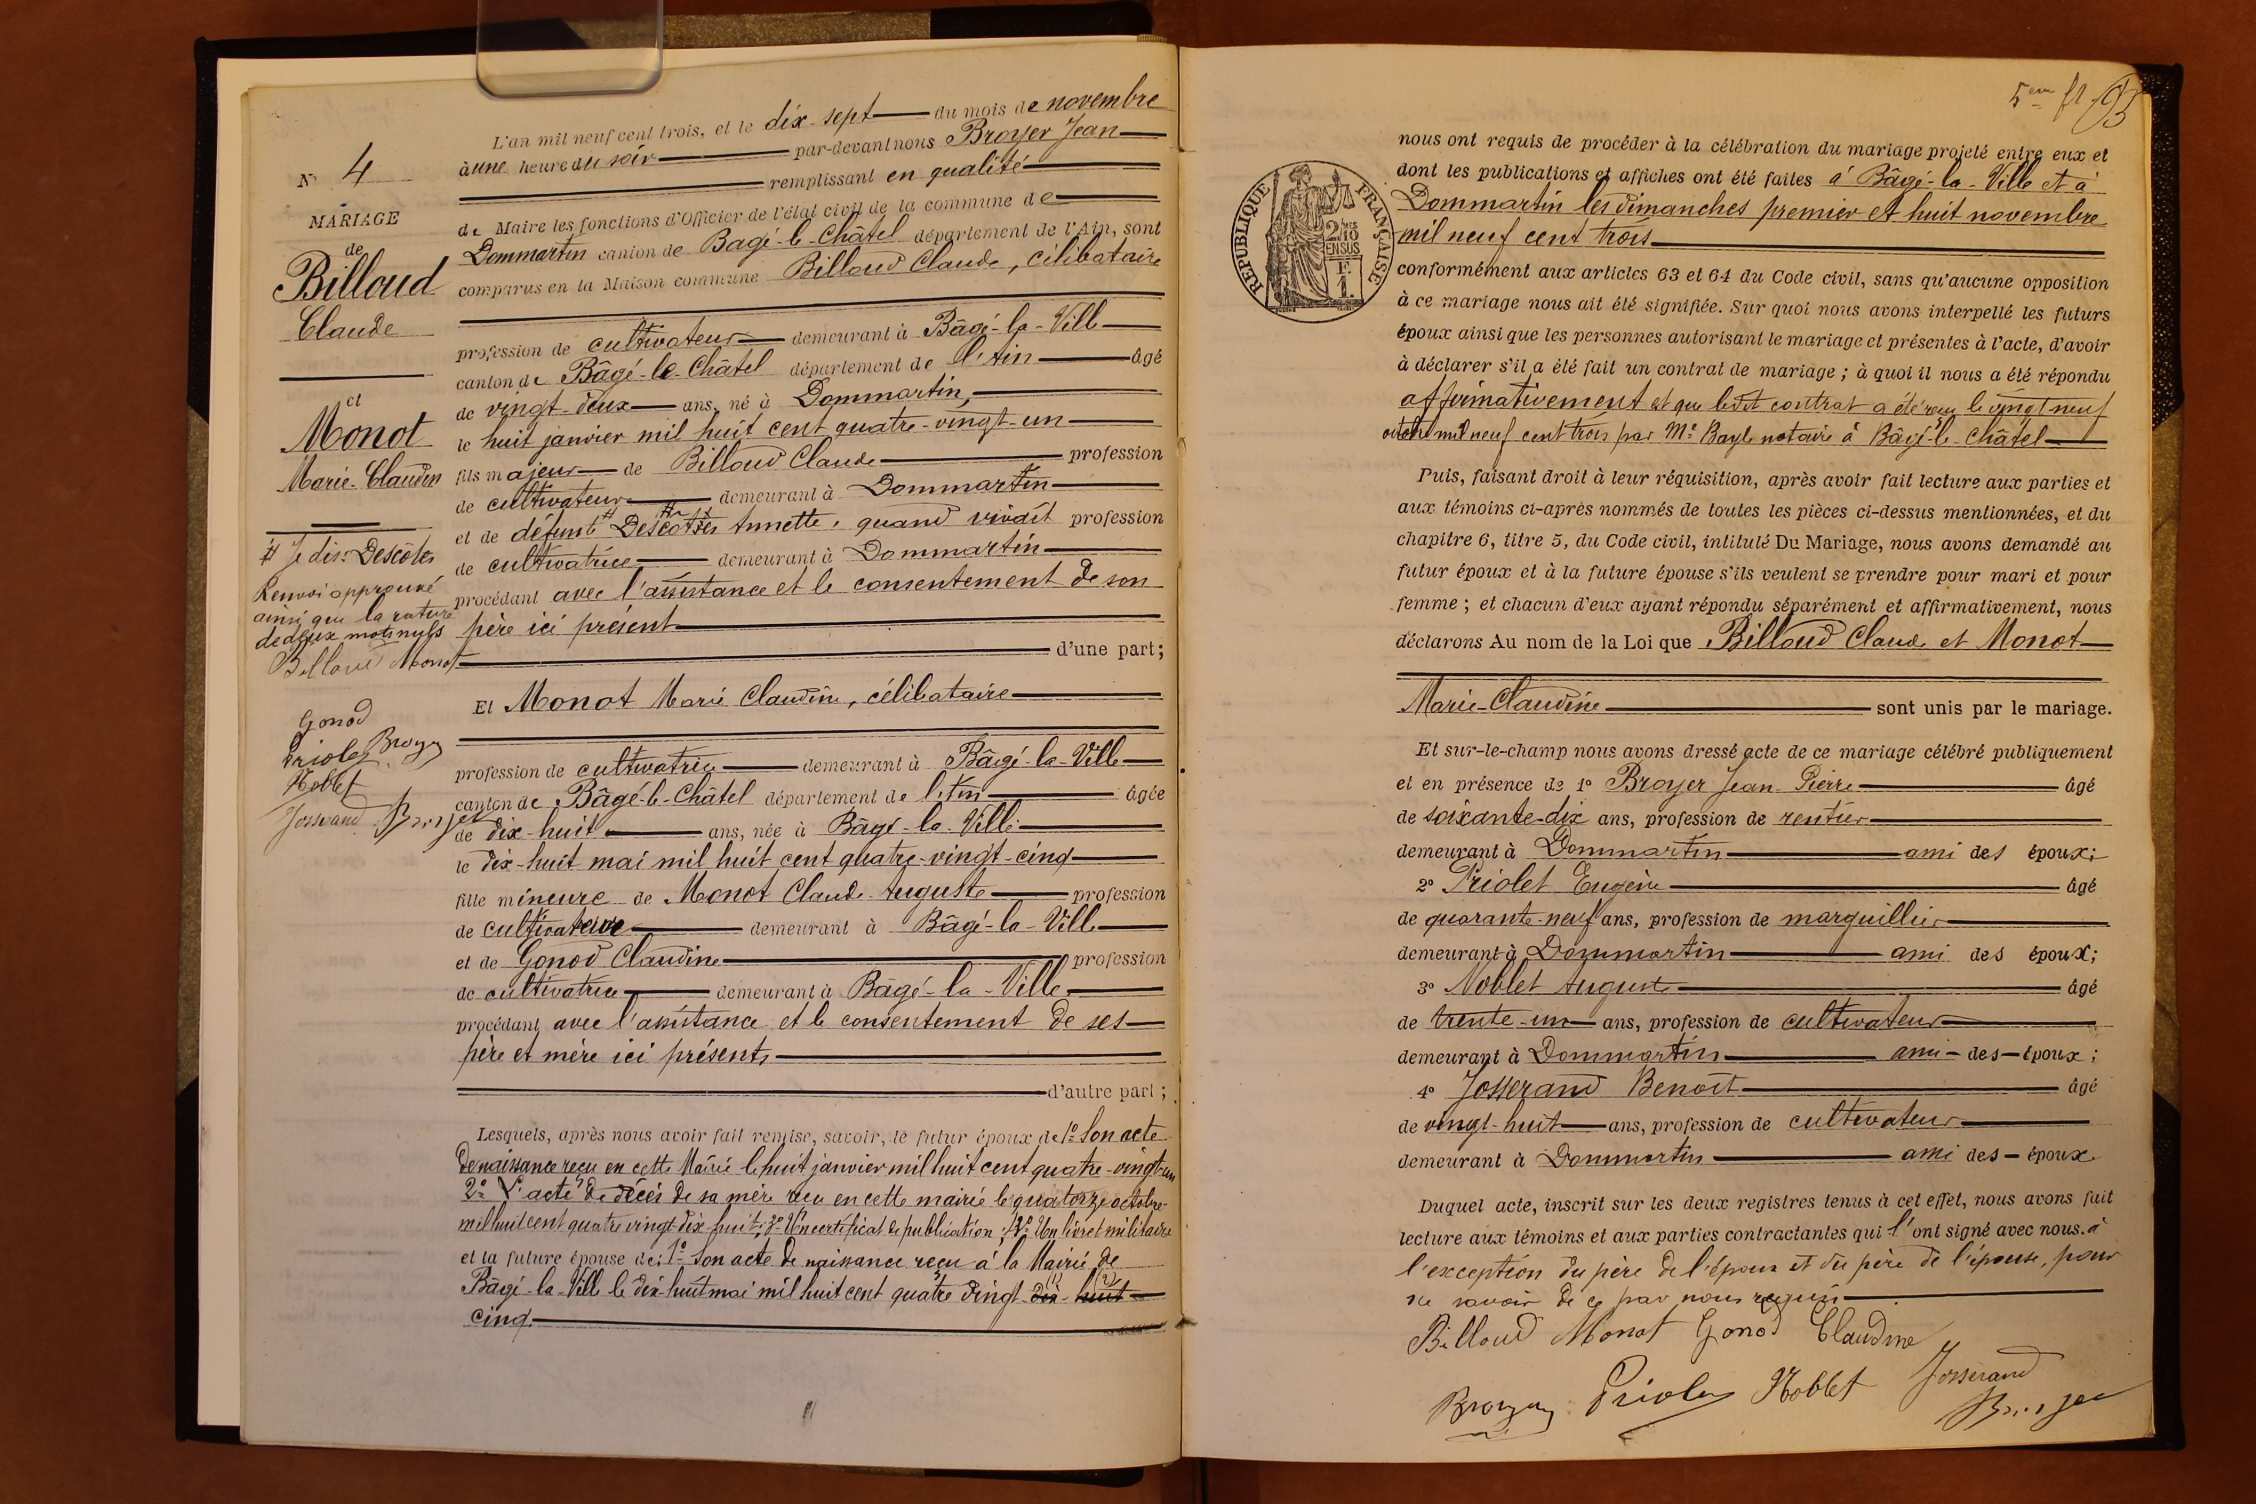 N° 4
MARIAGE
de
Billoud
Claude
et
Monot
Marie-Claudine
# Je dis: Descôtes
Renvoi approuvé
ainsi que la rature
de deux mots nuls
Billoud Monot
Gonod
Priolet Broyer
Noblet
Josserand Broyer
L'an mil neuf cent trois, et le dix-sept du mois de novembre
à une heure du soir par-devant nous Broyer Jean
remplissant en qualité
de Maire les fonctions d'Officier de l'état civil de la commune de
Dommartin canton de Bagé-le-Châtel département de l'Ain, sont
comparus en la Maison commune Billoud Claude, célibataire
profession de cultivateur demeurant à Bâgé-la-Ville
canton de Bâgé-le-Châtel département de l'Ain âgé
de vingt-deux ans, né à Dommartin,
le huit janvier mil huit cent quatre-vingt-un
fils majeur de Billoud Claude profession
de cultivateur demeurant à Dommartin
et de défunte # Descottes Annette, quand vivait profession
de cultivatrice demeurant à Dommartin
procédant avec l'assistance et le consentement de son
père ici présent
d'une part;
Et Monot Marie Claudine, célibataire
profession de cultivatrice demeurant à Bâgé-la-Ville
canton de Bâgé-le-Châtel département de l'Ain âgée
de dix-huit ans, née à Bâgé-la-Ville
le dix-huit mai mil huit cent quatre-vingt-cinq
fille mineure de Monot Claude Auguste profession
de cultivateur demeurant à Bâgé-la-Ville
et de Gonod Claudine profession
de cultivatrice demeurant à Bâgé-la-Ville
procédant avec l'assistance et le consentement de ses
père et mère ici présents
d'autre part;
Lesquels, après nous avoir fait remise, savoir, le futur époux de 1° Son acte
de naissance reçu en cette Mairie le huit janvier mil huit cent quatre-vingt-un
2° L'acte de décès de sa mère reçu en cette mairie le quatorze octobre
mil huit cent quatre vingt dix-huit; 3° Un certificat de publication; 4° Un livret militaire
et la future épouse de: 1° Son acte de naissance reçu à la Mairie de
Bâgé-la-Ville le dix-huit mai mil huit cent quatre vingt dix (1) huit (2)
cinq.
5eme ft
nous ont requis de procéder à la célébration du mariage projeté entre eux et
dont les publications et affiches ont été faites à Bâgé-la-Ville et à
Dommartin les dimanches premier et huit novembre
mil neuf cent trois
RÉPUBLIQUE FRANÇAISE
2/10
EN SUS
F.
1.
conformément aux articles 63 et 64 du Code civil, sans qu'aucune opposition
à ce mariage nous ait été signifiée. Sur quoi nous avons interpellé les futurs
époux ainsi que les personnes autorisant le mariage et présentes à l'acte, d'avoir
à déclarer s'il a été fait un contrat de mariage; à quoi il nous a été répondu
affirmativement et que ledit contrat a été reçu le vingt neuf
octobre mil neuf cent trois par Me Bayle notaire à Bâgé-le-Châtel
Puis, faisant droit à leur réquisition, après avoir fait lecture aux parties et
aux témoins ci-après nommés de toutes les pièces ci-dessus mentionnées, et du
chapitre 6, titre 5, du Code civil, intitulé Du Mariage, nous avons demandé au
futur époux et à la future épouse s'ils veulent se prendre pour mari et pour
femme; et chacun d'eux ayant répondu séparément et affirmativement, nous
déclarons Au nom de la Loi que Billoud Claude et Monot
Marie-Claudine sont unis par le mariage.
Et sur-le-champ nous avons dressé acte de ce mariage célébré publiquement
et en présence de 1° Broyer Jean-Pierre âgé
de soixante-dix ans, profession de rentier
demeurant à Dommartin ami des époux;
2° Priolet Eugène âgé
de quarante-neuf ans, profession de marguillier
demeurant à Dommartin ami des époux;
3° Noblet Auguste âgé
de trente-un ans, profession de cultivateur
demeurant à Dommartin ami-des-époux;
4° Josserand Benoît âgé
de vingt-huit ans, profession de cultivateur
demeurant à Dommartin ami des-époux
Duquel acte, inscrit sur les deux registres tenus à cet effet, nous avons fait
lecture aux témoins et aux parties contractantes qui l'ont signé avec nous. à
l'exception du père de l'époux et du père de l'épouse, pour
ne savoir de ce par nous requis
Billoud Monot Gonod Claudine
Broyer Priolet Noblet Josserand
Broyer